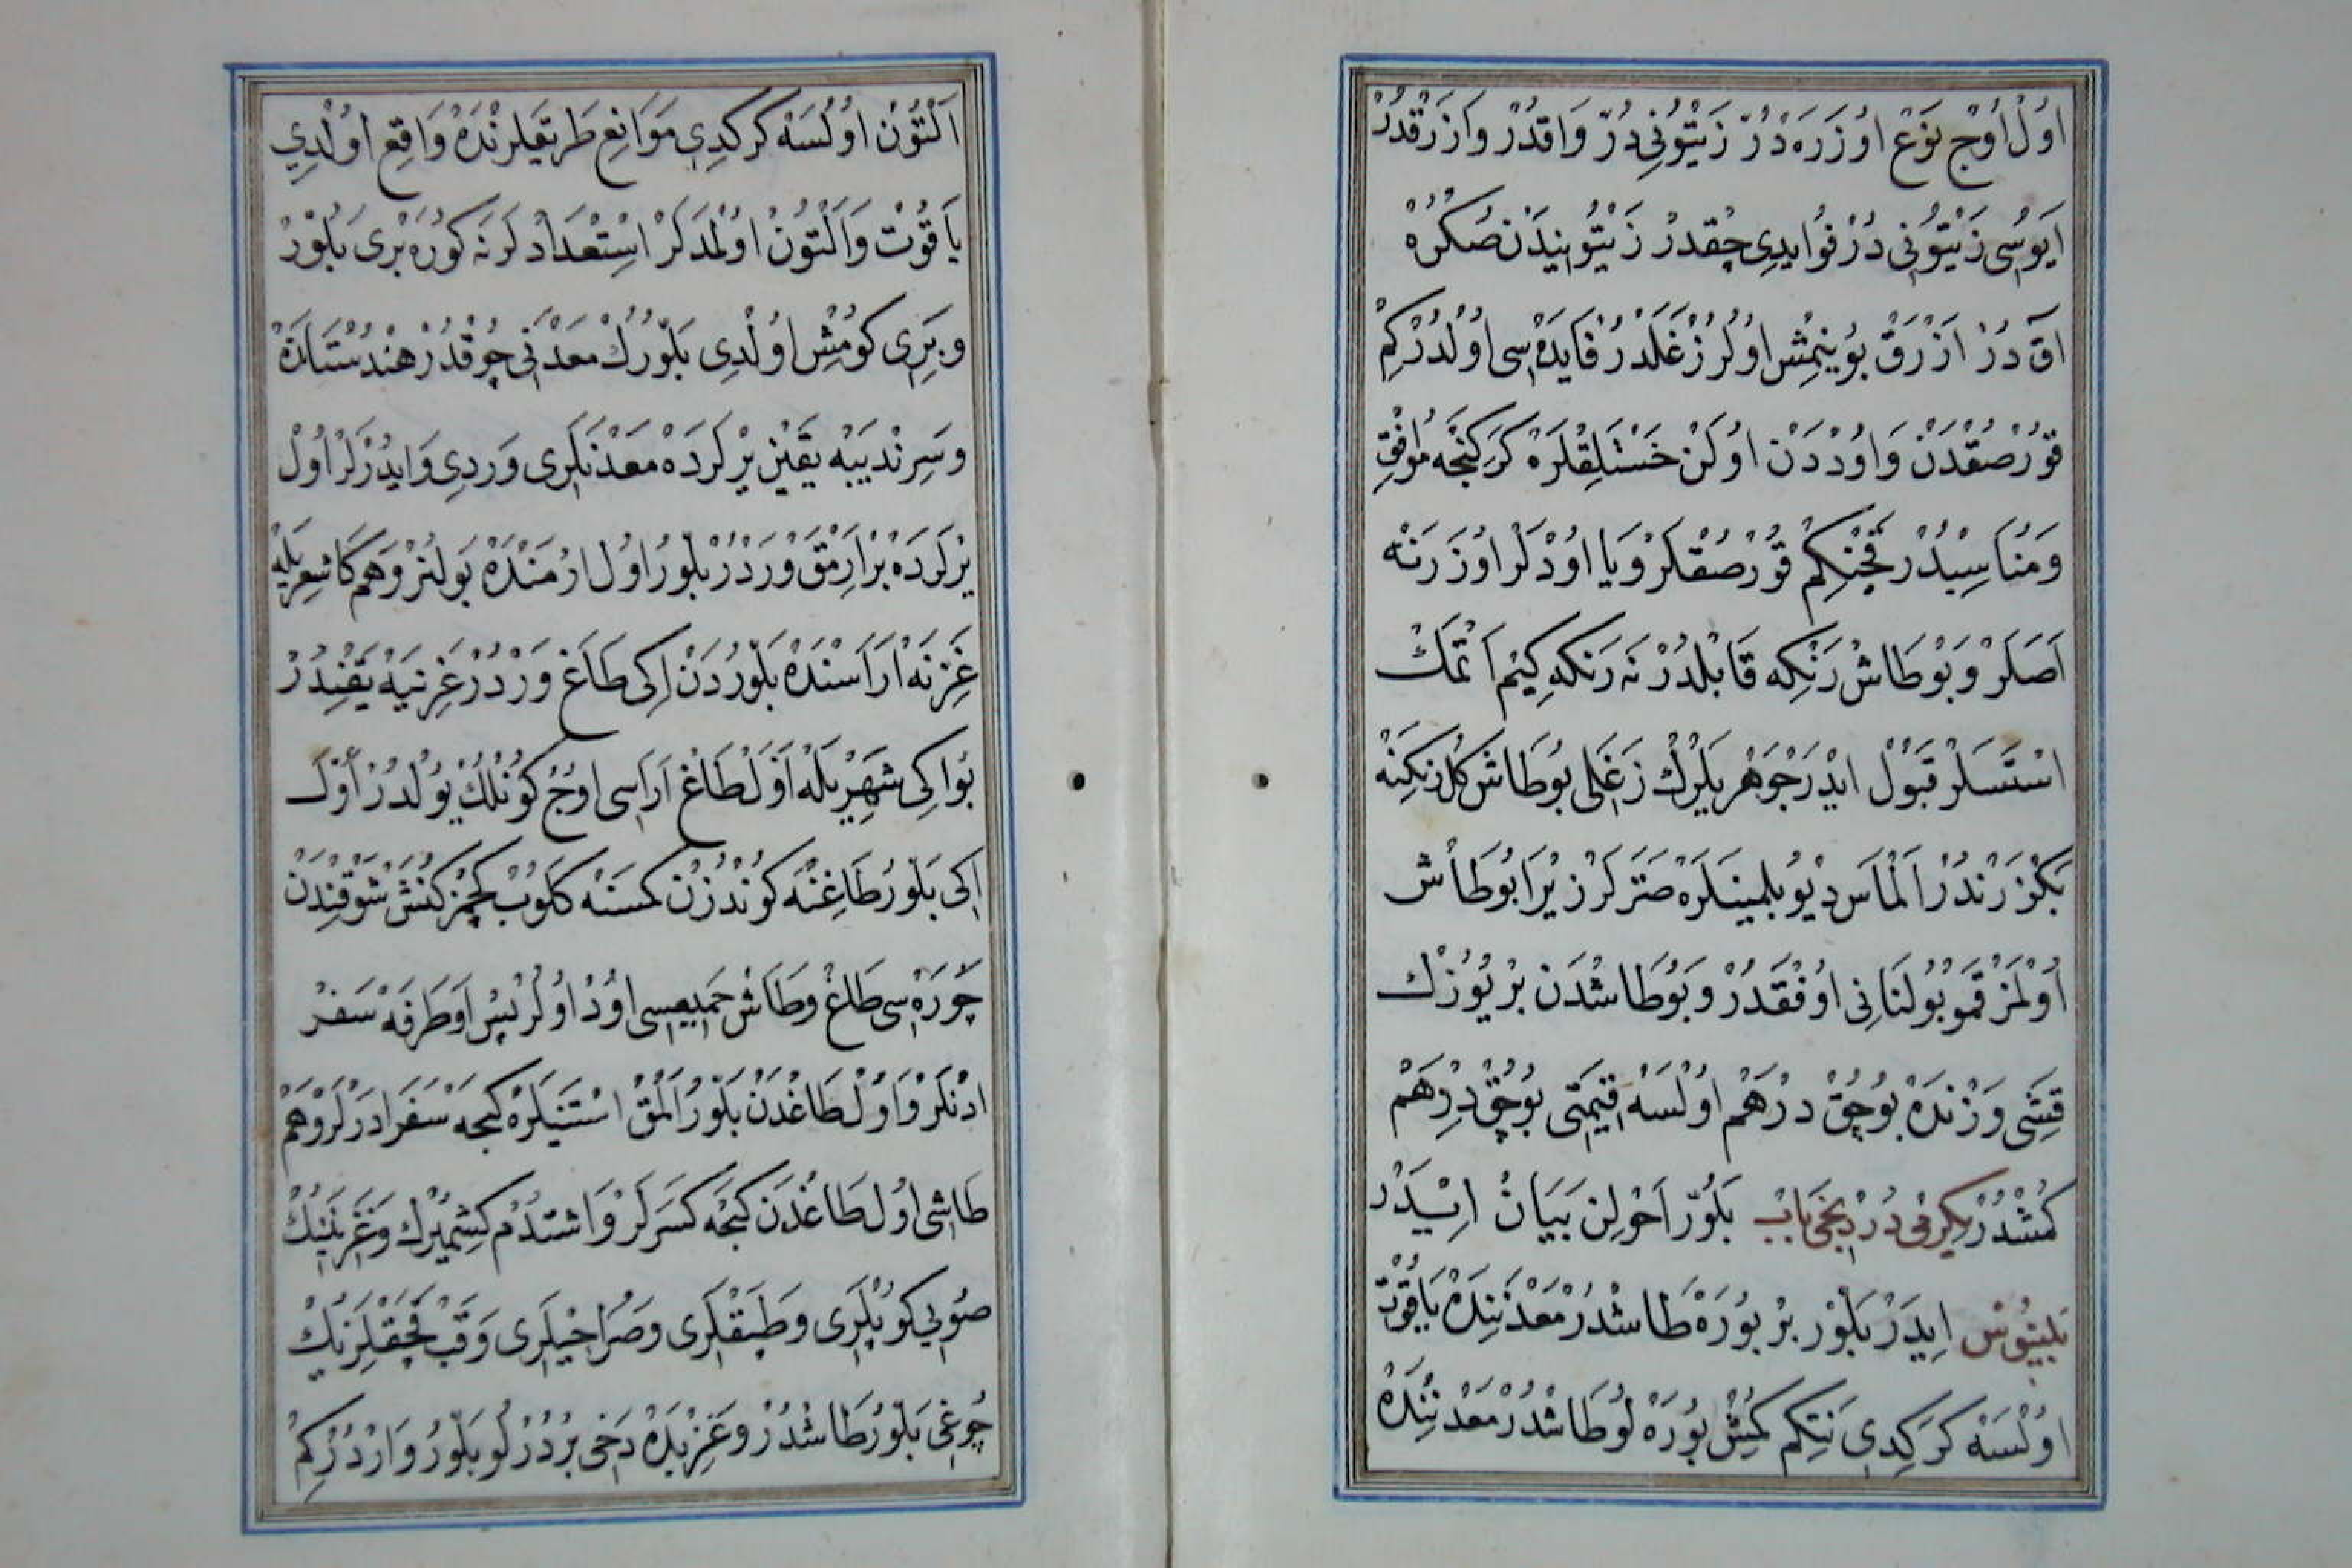 اَوُلْ اُوْجْ نَوْعْ اوُزَرَه دُرْ زَيْتُونِى دُرْ وَاقدُرْ وَازَرَقْدُرْ
اَيوُسِى زَيْتُونِى دُرْ فَوايدِى چقدُرْ زَيْتُونِيدَنْ صُكْرَه
اَقْ دُرْ اَزْرَقْ بُوينمِشْ اوُلُرْ زَغَلْدُرْ فَايدَه سِى اوُلْدُرْكِمْ
قوُرْصُقْدَنْ وَاوُدْدَنْ اوُلَنْ خَسْتَلِقْلَرَه كَرَكنجَه مُوَافِقْ
وَمُنَاسِبدُرْ قَچنكِمْ قوُرْصُقْلَرْ وَيَا اوُدْلَرْ اوُزَرنَه
اَصَلَرْ وَبوُ طَاشْ رَنْكِه قَابْلدُرْ نَه رَنكَه كِيم اَتْمَكْ
اسْتَسَلَرْ قَبوُلْ ايْدَرْ جَوْهَرْ بِلَرُكْ زَغَلِى بوُطَاشْ كُل رَنكِنَه
بَكْزَرَنْدُرْ اَلْمَاسْ ديُو بِلمِينلَرَه صَتَرلَرْ زيْرَا بوُطَاشْ
اُولْمَزْ قمُو بوُلنَانِى اوُفَقْدُرْ وَبوُطَاشْدَنْ برْ يُوزْك
قَشِى وَزْنْدَه بوُچُقْ دِرْهَمْ اوُلْسَه قِيمَتِى بوُچُقْ دِرْهَمْ
كُمُشْدُرْ يكِرْمِى دُرْدِنجِى بَابْ بَلوُرْ اَحْوَلِنْ بَيَانْ ايْدَرْ
بَلِينوُسْ ايدَرْ بَلّوُرْ برْ بوُرَه طَاشْدُرْ مَعْدَنِنْدَه يَاقوُتْ
اوُلْسَه كَرَكدِى نِتَكِمْ كُمِشْ بوُرَه لوُطَاشْدُرْ مَعْدَنِنْدَه
اَلْتوُنْ اوُلْسَه كَركَدِى مَوَانِعْ طَرِيقَيلَرنْدَه وَاقِعْ اوُلْدِى
يَاقوُتْ وَاَلْتوُنْ اوُلْمَدلَرْ اسْتِعْدَادْلَرنَه كوُرَه برِى بَلوُرْ
وَبرِى كوُمُشْ اوُلْدِى بَلّوُرُكْ مَعْدَنِى چوُقدُرْ هنْدُسْتَانْدَه
وَسَرَنْدِيبَه يَقينْ يرْلَرْدَه مَعْدَنلَرِى وَردِى وَايدُرْلَرْ اُولْ
يرْلَرْدَه برْ اِرْمَقْ وَرْدُرْ بَلّوُرْ اُولْ اَرْمَنْدَه بوُلنُرْ وَهَم كَاشعِر بلَه
غَزنَه اَرَاسنْدَه بَلّوُردَنْ اِكِى طَاغْ وَرْدُرْ غَزنَيَه يَقِندُرْ
بوُ اكِى شَهِرْ بلَه اَوَلْ طَاغْ اَرَاسِى اوُجْ كوُنْلُكْ يوُلدُرْ اَوُلْ
اِكِى بَلّوُرْ طَاغِنَه كوُنْدُزنْ كمْسَنَه كَلوُبْ كچمَزْ كنَشْ شَوْقِندَنْ
چَورَه سِى طَاغْ وَطَاشْ جَمِيعِسِى اوُدْ اوُلُرْ پسْ اَوْ طَرَفَه سَفَرْ
ادَنْلَرْ وَاوُلْ طَاغدَنْ بَلّوُرْ اَلمَقْ اسْتَينلَرَه كيجَه سَفَر ادَرْلَرْ وَهَمْ
طَاشِى اوُلْ طَاغدَنْ كيجَه كَسَرلَرْ وَاشتدُمْ كِشمِيرُكْ وَغَزنَينُكْ
صوُيِى كوُپْلَرِى وَطَبَقْلَرِى وَصُرَاحِيلَرِى وَقَبْ قَچَقْلَرِينُكْ
چوُغِى بَلّوُرْ طَاشْدُرْ وَغَزنَيدَه دَخِى برْ دُرْلوُ بَلّوُرْ وَارْدُرْكِمْ